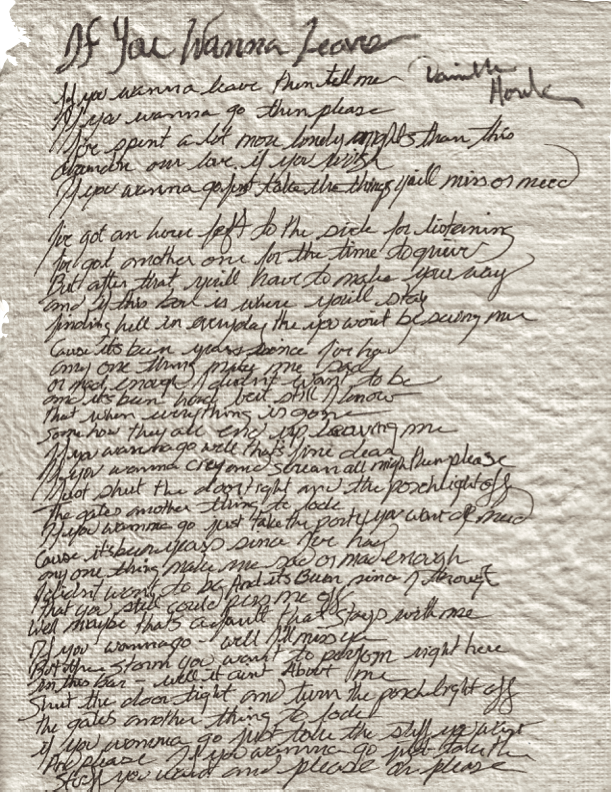 If You Wanna Leave
Danielle
Howle
If you wanna leave then tell me
If you wanna go then please
I've spent a lot more lonely nights than this
abandon our love if you wish
If you wanna go just take the things you'll miss or need
I've got an hour left to the side for listening
I've got another one for the time to grieve
But after that you'll have to make your way
and if this is where you'll stay
finding hell in everyday then you won't be seeing me
Cause it's been years since I've had
any one thing make me sad
or mad enough I didn't want to be
and it's been hard but still I know
that when everything is gone
somehow they all end up leaving me
If you wanna go well that's fine dear
If you wanna cry and scream all night then please
Just shut the door tight and the porchlight off
The gates another thing to lock
If you wanna go just take the parts you want or need
Cause it's been years since I've had
any one thing make me sad or mad enough
I didn't want to be And it's Been since I thought
That you still could me off
Well maybe that's a fault that stays with me
If you wanna go - well I'll miss ya
But the storm you want to perform right here
in this bar - well it aint About me
Shut the door tight and turn the porchlight off
the gates another thing to lock
if you wanna go just take the stuff ya want
And please If you wanna go just take the
Stuff you need and please oh please